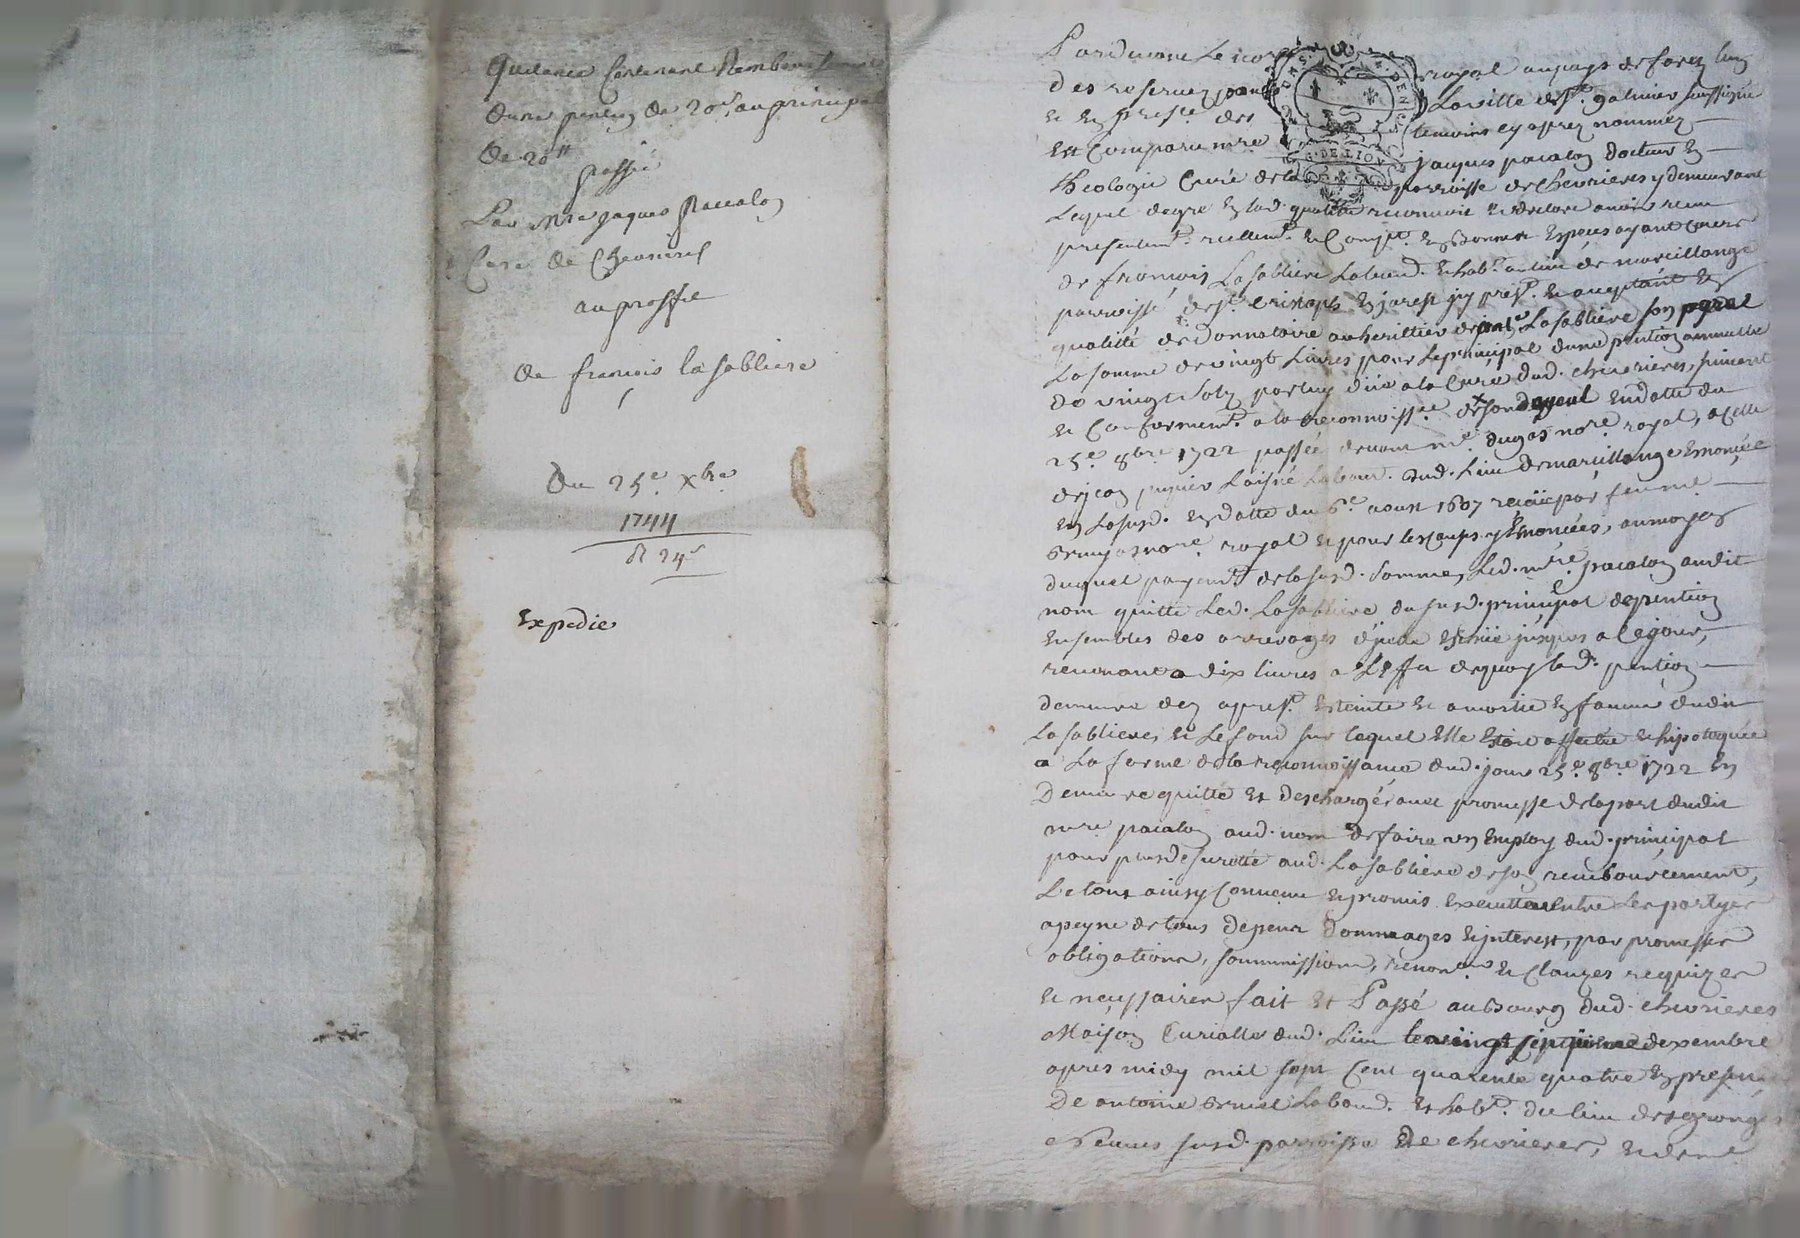 Quitance Contenant Remboursement
dune pention de 20s au principal
de 20lt
passé
Par Mre Jaques Paccalon
Curé de Chevrieres
au proffit
de francois lasabliere
Du 25e Xbre
1744
Expedié
Pardevant Le no royal au pays de forez
des reservez pour La ville de St. galmier soussigné
et En presce des temoins cy apres nommez
Est Comparu mre jacques pacalon docteur En
theologie Curé de la parroisse de Chevrieres y demeurant
Lequel de gré En lad. qualité reconnoit et declare avoir receu
presentemt. reellemt. et Compt. En Bonnes Especes ayant Cours
de francois Lasabliere Labourd. et hab. au lieu de marcillange
parroisse de St. Cristophle En jarest jcy prest. et acceptant En
qualitté de donnataire ou herittier de Lasabliere son
La somme de vingt Livres pour le principal dune pention annuelle
de vingt solz par luy düe a la Cure dud. chevrieres, suivant
et Conformemt. a la reconnoissce de son ayeul En datte du
25e. 8bre 1722 passée devant me. dugas nore. royal, a celle
de jean Laisné Labour. dud. Lieu de marcillange Enoncée
En Lasusd. En datte du 6e. aoust 1607 receüe par feu me.
nore. royal et pour les Causes y Enoncées, au moyen
duquel payemt. de la susd. somme, Led. mre. pacalon audit
nom quitte Led. Lasabliere du susd. principal de pention
Ensembles des arrerages d'jcelle jusques a Ce jour,
revenant a dix livres a L'Effet de quoy lad. pention
demeure des a prest. Esteinte et amortie En faveur dudit
Lasabliere, et Le fond sur lequel Elle Etoit affectée et hipotequée
a La forme de la reconnoissance dud. jour 25e. 8bre 1722 En
Demeure quitte Et deschargé avec promesse de la part dudit
mre pacalon aud. nom de faire un Employ dud. principal
pour plus de suretté aud. Lasabliere de son rembourcement,
Le tout ainsy Convenu et promis Executter Entre Les partyes
a peyne de tous depens dommages et jnterest, par promesses
obligations, soummissions, renon. et Clauzes requizes
et neçessaires fait Et Passé au Bourg dud. chevrieres
Maison Curialle dud. Lieu le vingt septieme dexembre
apres midy mil sept Cent quarente quatre En presence
De antoine Labourd. Et hab. du lieu des granges
susd. parroisse de chevrieres, et de me